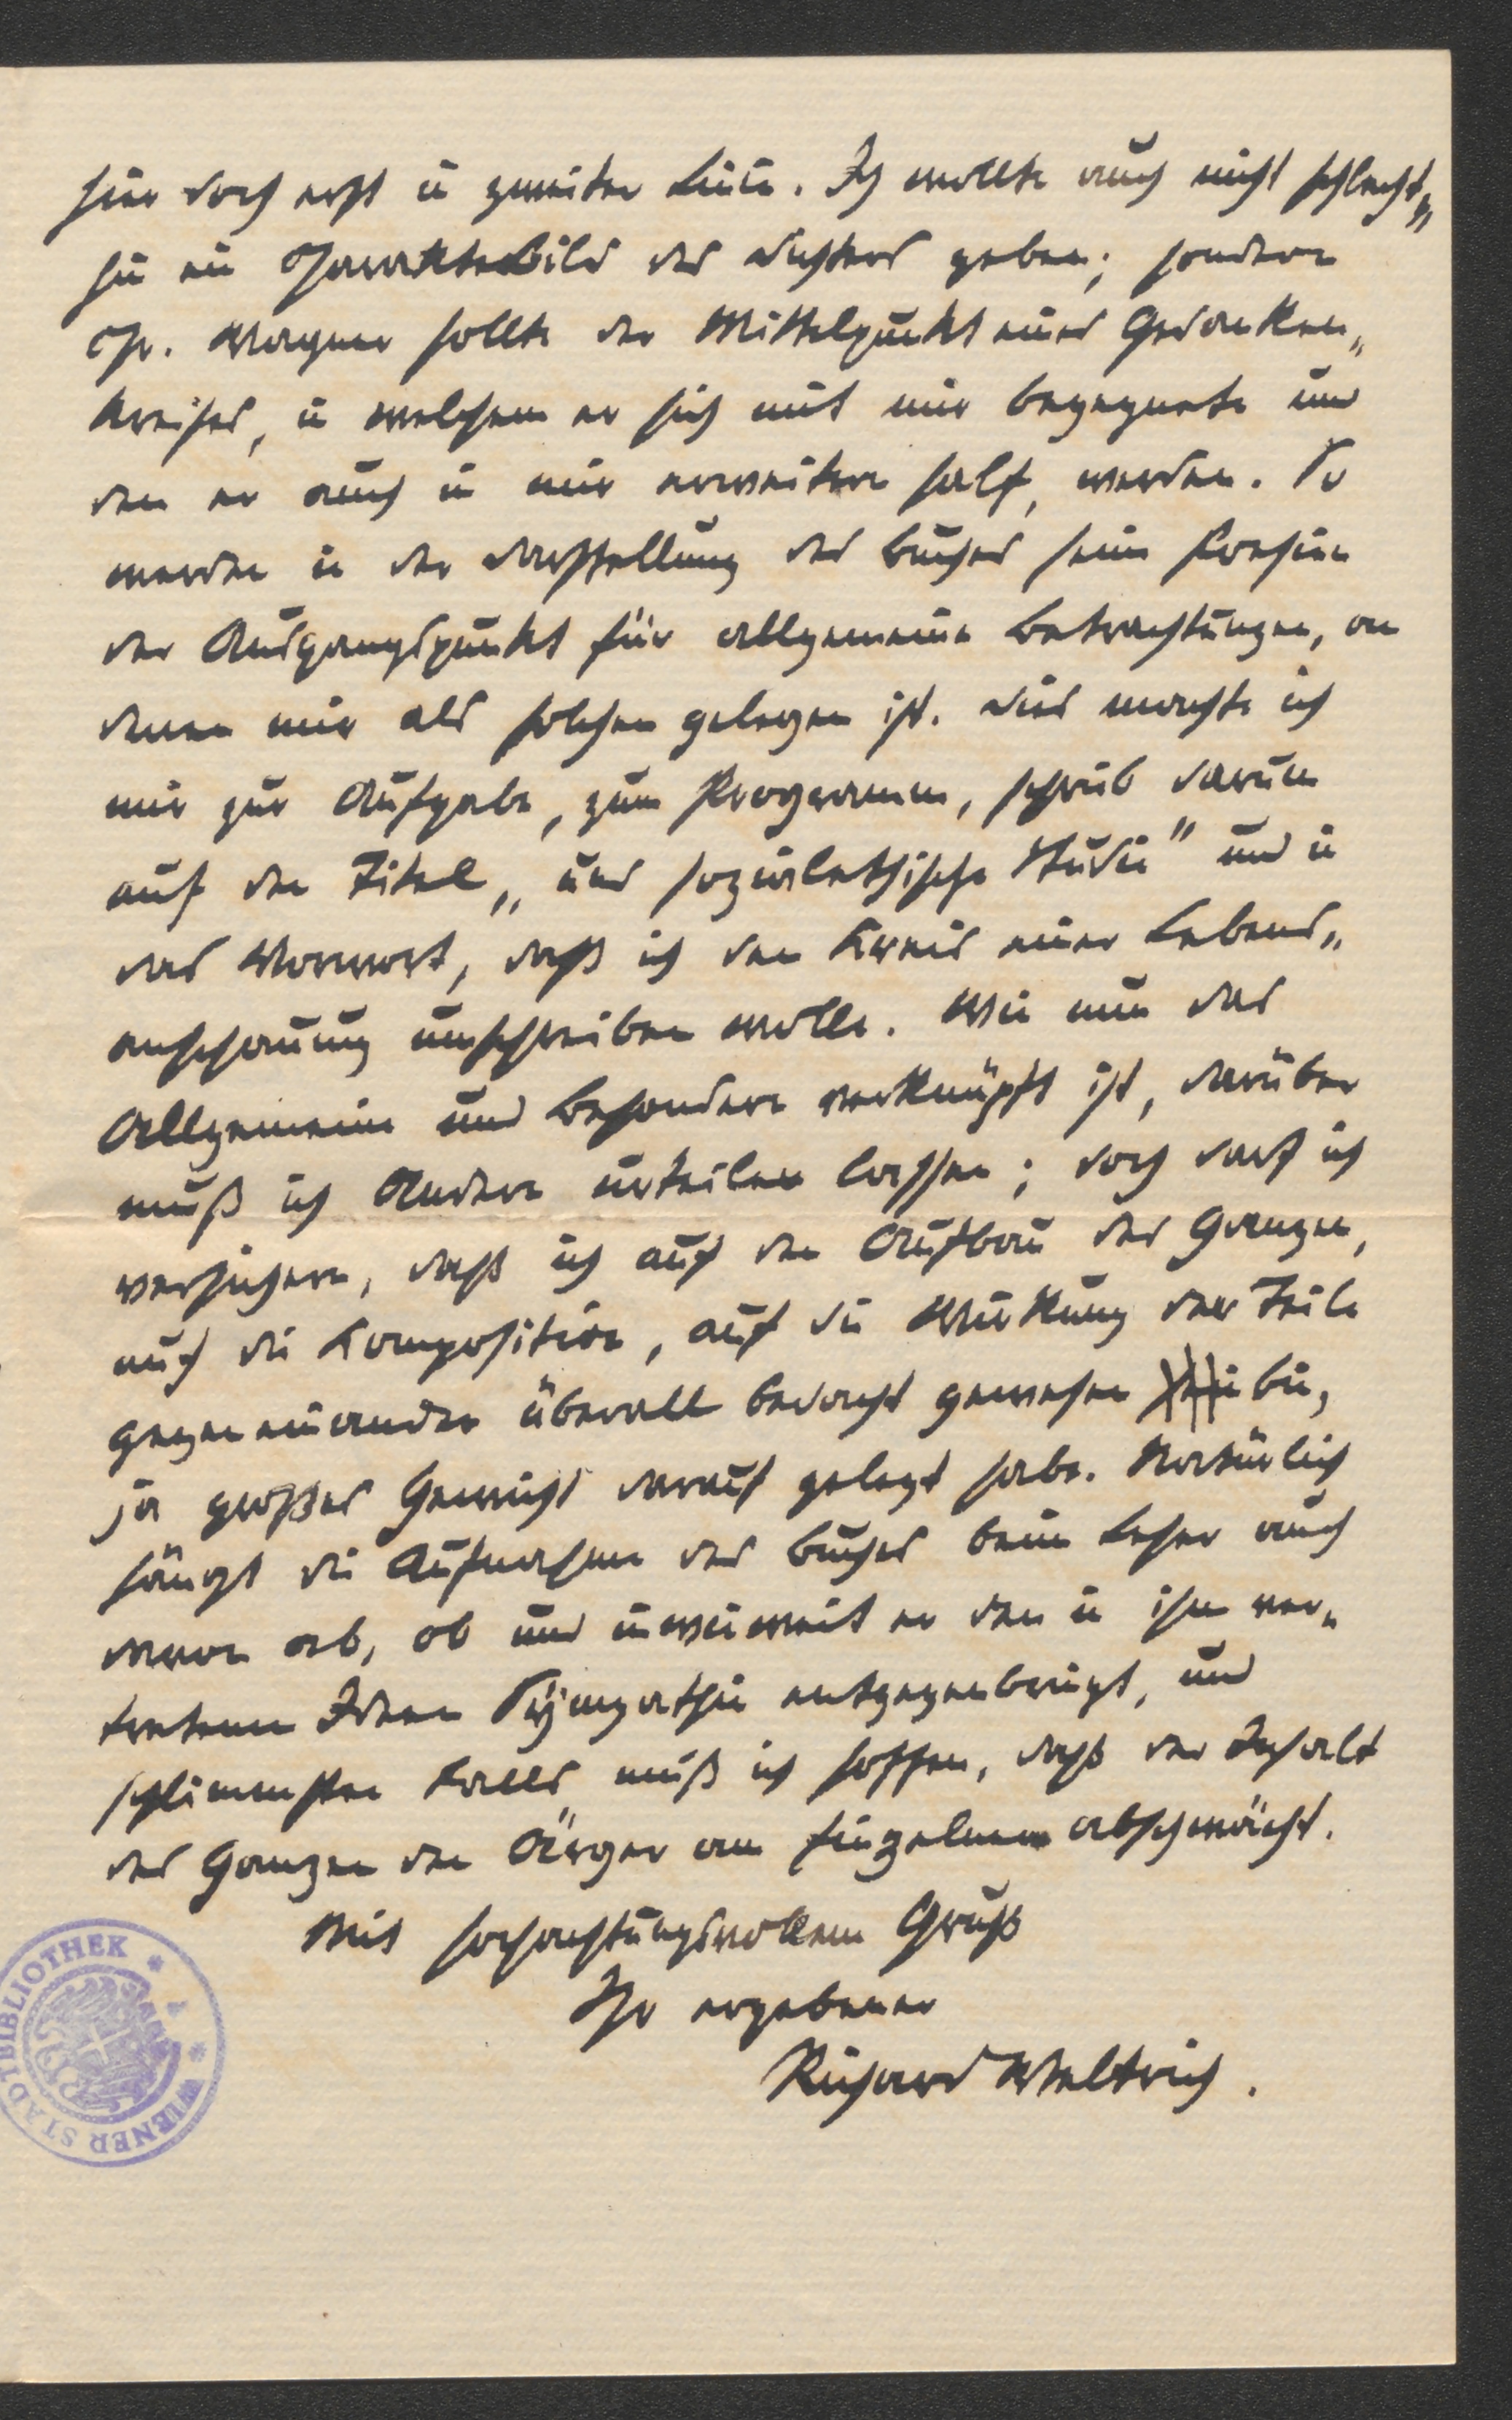 hier doch erst in zweiter Linie. Ich wollte auch nicht schlecht„
hin ein Charakterbild des Dichters geben; sondern
Chr. Wagner sollte der Mittelpunkt eines Gedanken„
kreises, in welchem er sich mit mir begegnete und
den er auch in mir erweitern half, werden. So
werden in der Darstellung des Buches seine Poesien
der Ausgangspunkt für allgemeine Betrachtungen, an
denen mir als solchen gelegen ist. Dies machte ich
mir zur Aufgabe, zum Programm, schrieb darum
auf den Titel „und sozialethische Studie" und in
das Vorwort, daß ich den Kreis einer Lebens„
anschauung umschreiben wolle. Wie nun das
Allgemeine und Besondere verknüpft ist, darüber
muß ich Andere urteilen lassen; doch darf ich
versichern, daß ich auf den Aufbau des Ganzen,
auf die Komposition, auf die Wirkung der Teile
gegeneinander überall bedacht gewesen bin,
ja großes Gewicht darauf gelegt habe. Natürlich
hängt die Aufnahme des Buches beim Leser auch
davon ab, ob und inwieweit er den in ihm ver„
tretenen Ideen Sympathie entgegenbringt, und
schlimmsten Falls muß ich hoffen, daß der Inhalt
des Ganzen den Ärger am Einzelnen abschwächt.
Mit hochachtungsvollem Gruß
Ihr ergebener
Richard Weltrich.
WIENER STADTBIBLIOTHEK